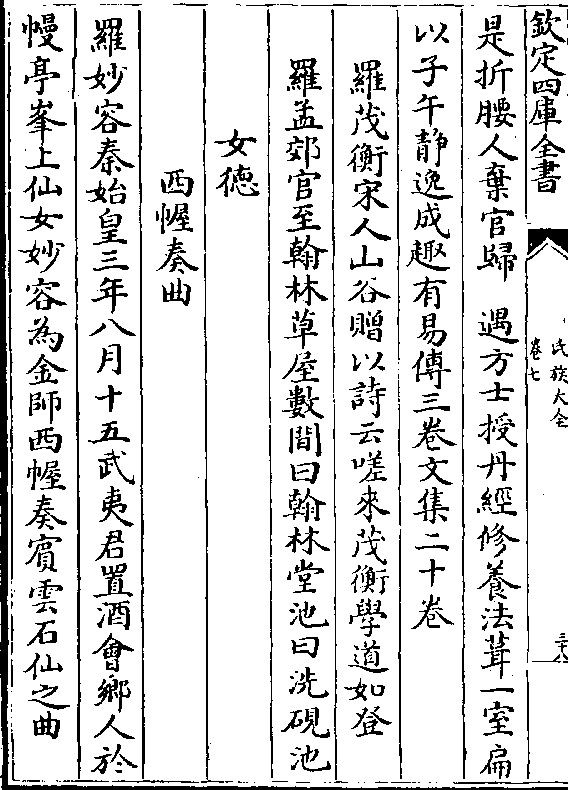 欽定四庫全書
氏族大全
卷七
三十八
是折腰人棄官歸　遇方士授丹經修養法葺一室扁
以子午靜逸成趣有易傳三卷文集二十卷
羅茂衡宋人山谷贈以詩云嗟來茂衡學道如登
羅孟郊官至翰林草屋數間曰翰林堂池曰洗硯池
女德
西幄奏曲
羅妙容秦始皇三年八月十五武夷君置酒會鄉人於
幔亭峯上仙女妙容為金師西幄奏賓雲石仙之曲